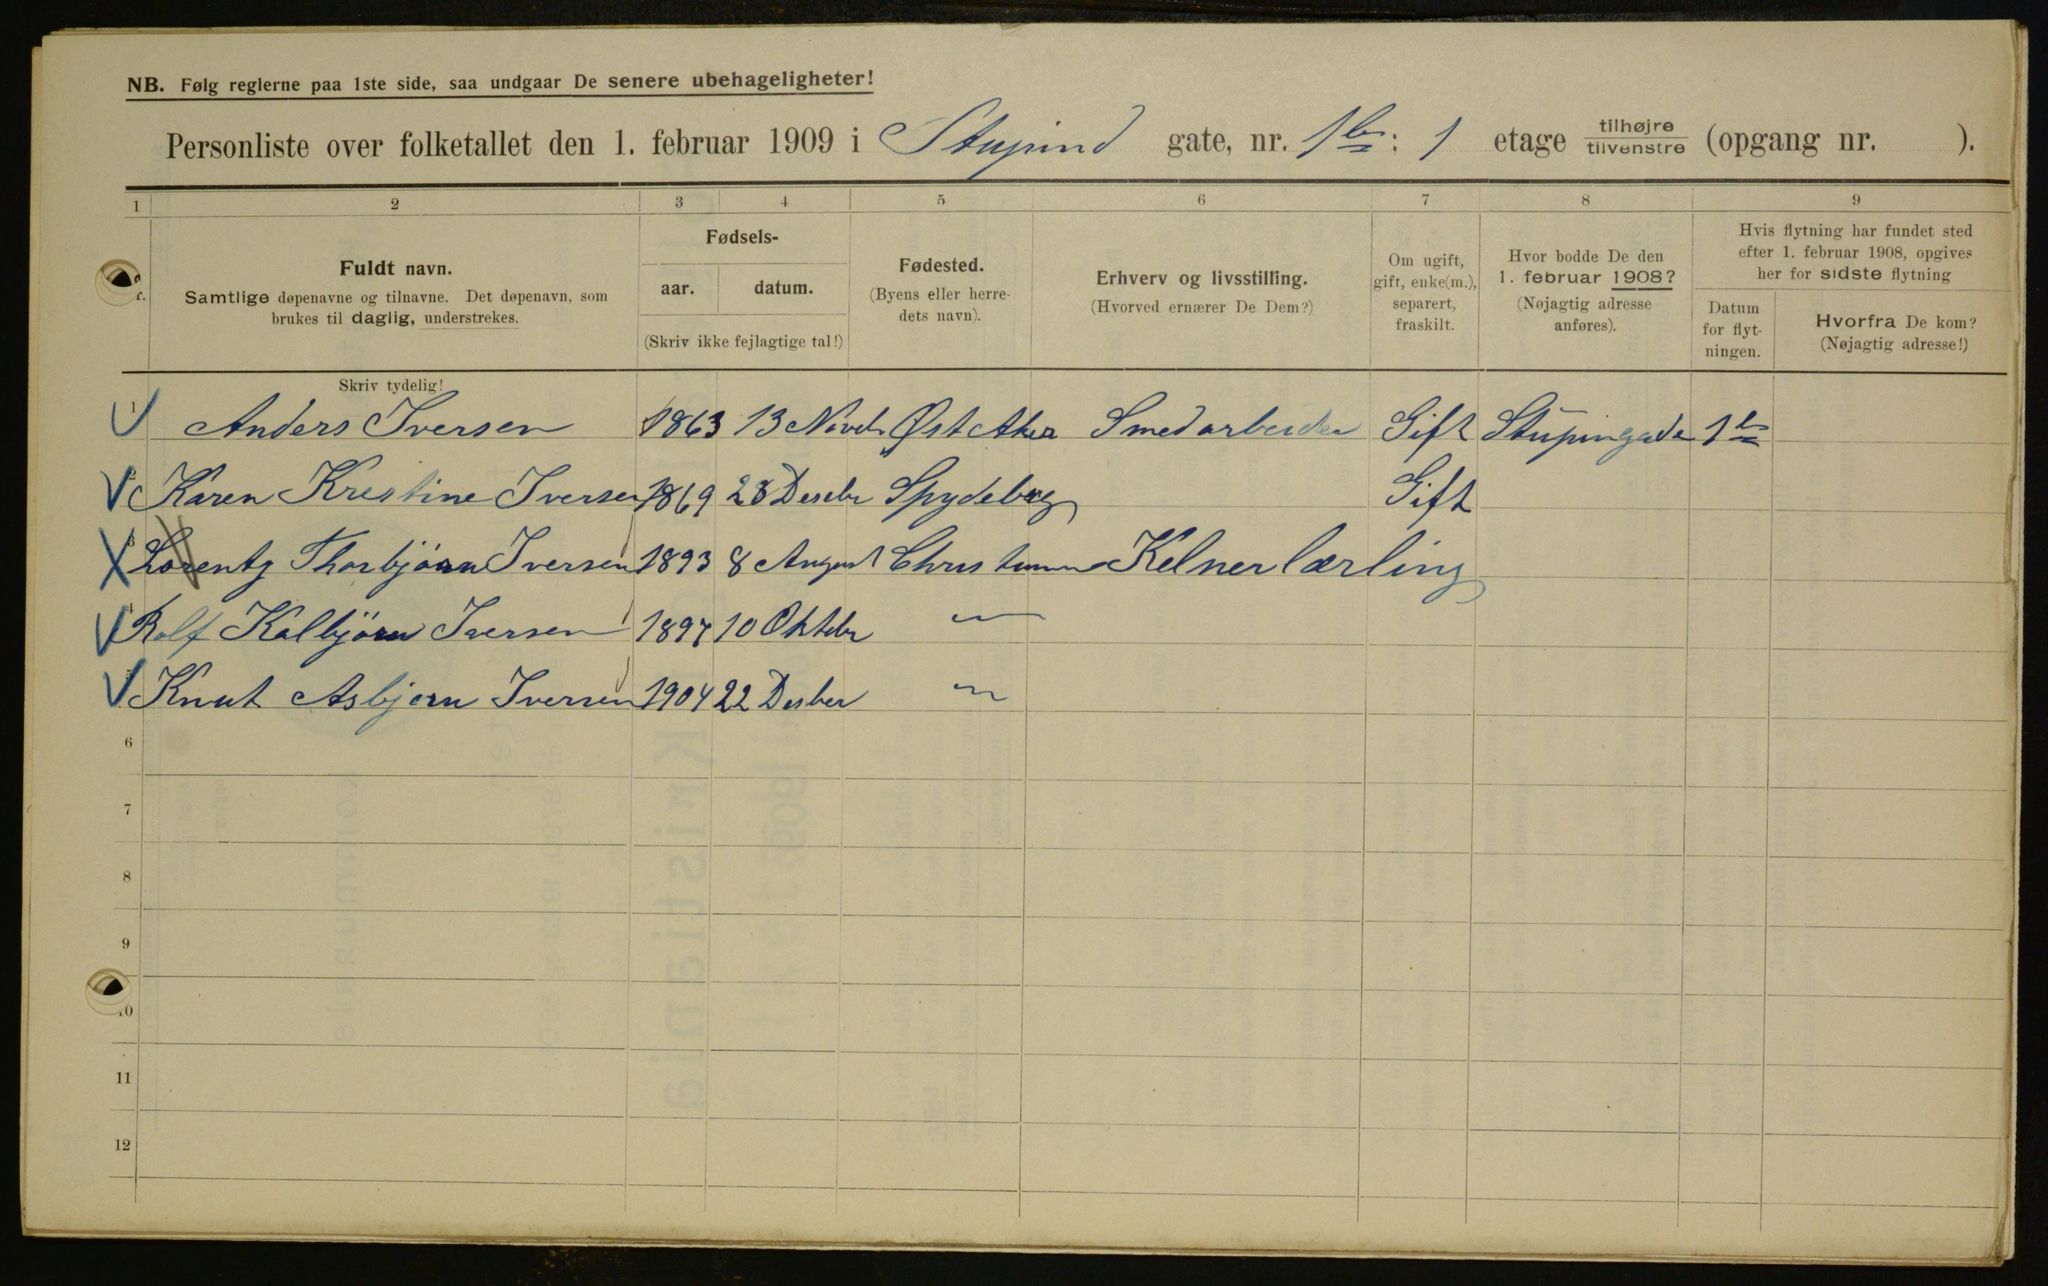 NB. Følg reglerne paa 1ste side, saa undgaar De senere ubehageligheter!
Personliste over folketallet den 1. februar 1909 i Stupind gate, nr. 1 b: 1 etage tilhøjre tilvenstre (opgang nr. ).
1 2 3 4 5 6 7 8 9
Fuldt navn.
Samtlige døpenavne og tilnavne. Det døpenavn, som
brukes til daglig, understrekes.
Fødsels-
aar. datum.
(Skriv ikke fejlagtige tal!)
Fødested.
(Byens eller herre-
dets navn).
Erhverv og livsstilling.
(Hvorved ernærer De Dem?)
Om ugift,
gift, enke(m.),
separert,
fraskilt.
Hvor bodde De den
1. februar 1908?
(Nøjagtig adresse
anføres).
Hvis flytning har fundet sted
efter 1. februar 1908, opgives
her for sidste flytning
Datum
for flyt-
ningen.
Hvorfra De kom?
(Nøjagtig adresse!)
Skriv tydelig!
1 Anders Iversen 1863 13 Novbr Øst Aker Smedarbeider Gift Stupingade 1 b
Karen Kristine Iversen 1869 28 Desebr Spydeberg Gift
3 Lorentz Thorbjørn Iversen 1893 8 August Christiania Kelnerlærling
4 Rolf Kolbjørn Iversen 1897 10 Oktobr "
Knut Asbjørn Iversen 1904 22 Desber "
6
7
8
9
10
11
12